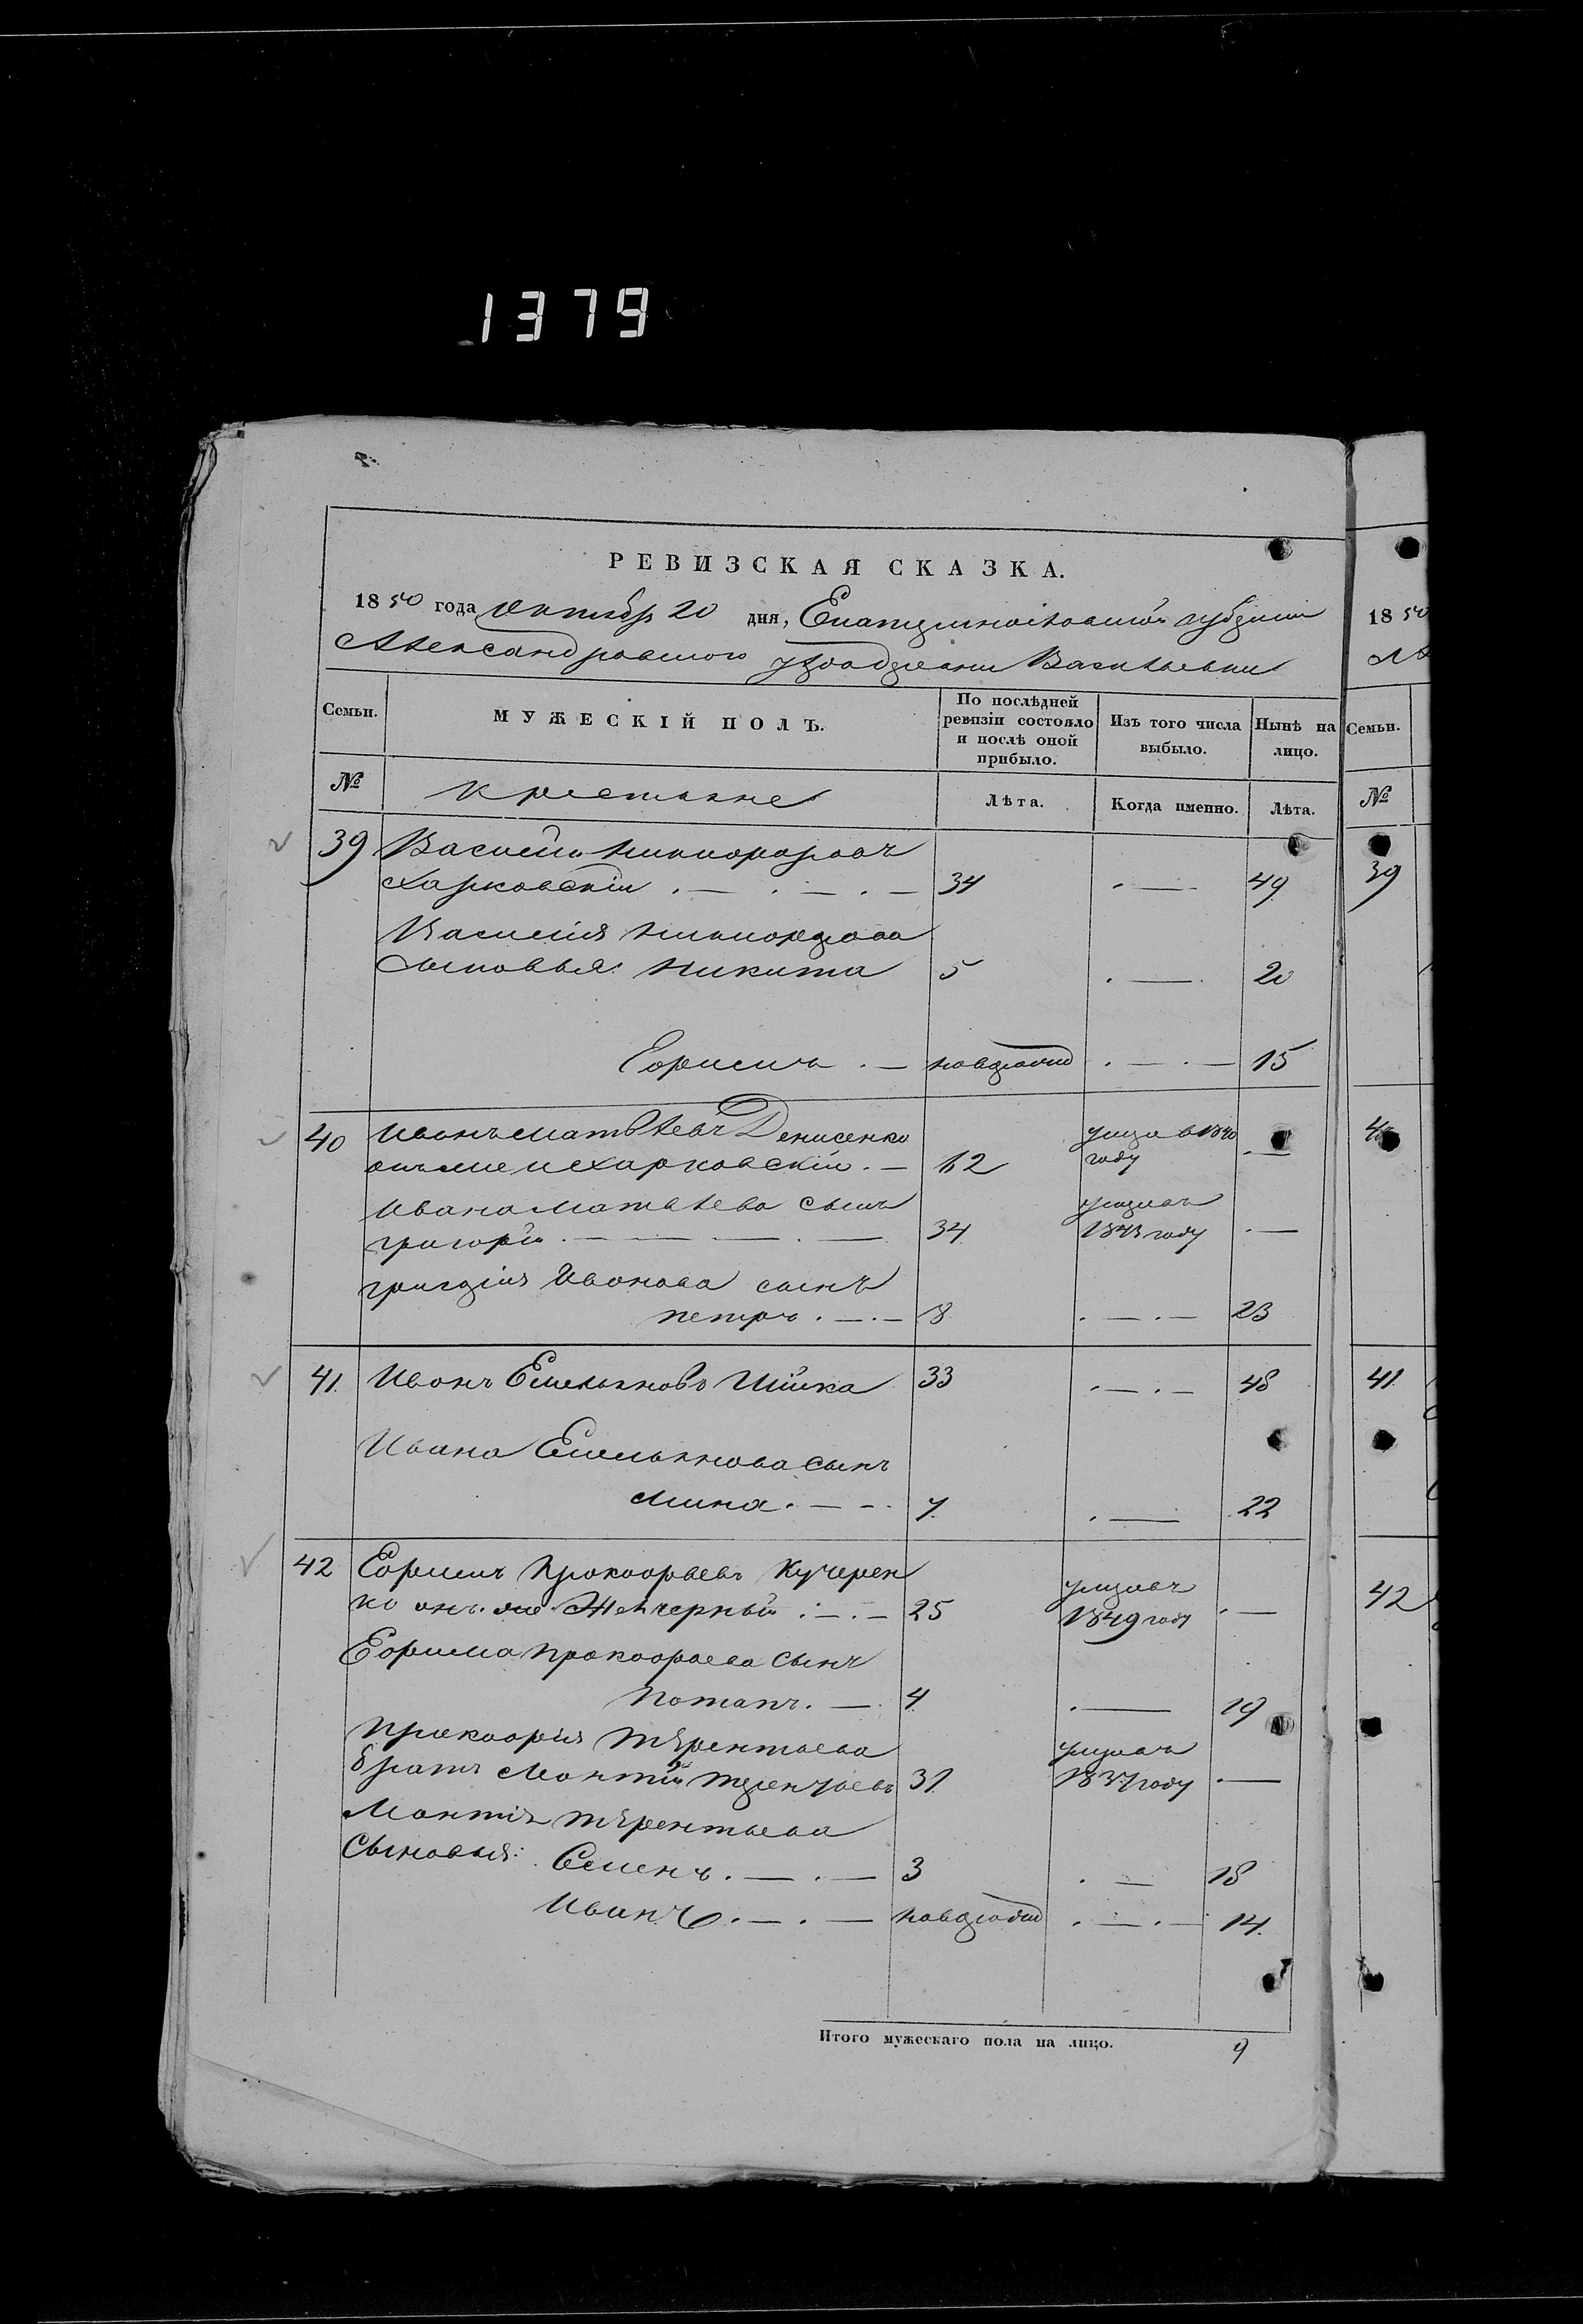 1379
РЕВИЗСКАЯ СКАЗКА.
1850 года октября 20 дня, Екатеринославской губернии
Александровского уезда деревни Васильевки
Семьи. МУЖЕСКІЙ ПОЛЪ. По послѣдней ревизіи состояло и послѣ оной прибыло. Изъ того числа выбыло. Нынѣ на лицо.
№ крестьяне Лѣта. Когда именно. Лѣта.
39 Василий Никифоровъ
Харковскій 34 49
Василия Никифорова
Сыновья: Никита 5 20
Ефимъ новорожд 15
40 Иванъ Матвѣевъ Денисенко умре в 1840
онъ же и Харковскій 62 году
Ивана Матвѣева сынъ умре въ
Григорій 34 1843 году
Григорія Иванова сынъ
Петръ 8 23
41 Иванъ Емельяновъ Шийка 33 48
Ивана Емельянова сынъ
Мина 7 22
42 Ефимъ Прокофьевъ Кучерен умре въ
ко онъ же 25 1849 году
Ефима Прокофьева сынъ
Потапъ 4 19
Прокофія Терентьева умре въ
братъ Терентьевъ 31 1837 году
Терентьева
Сыновья: Семенъ 3 18
Иванъ новорожд 14
Итого мужескаго пола на лицо. 9
1850
Семьи.
№
39
40
41
42